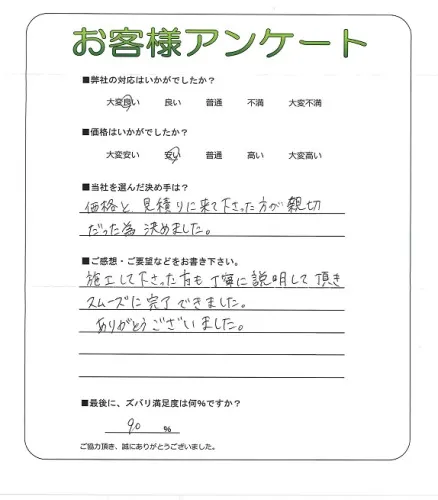 お客様アンケート
■弊社の対応はいかがでしたか？
大変良い 良い 普通 不満 大変不満
■価格はいかがでしたか？
大変安い 安い 普通 高い 大変高い
■当社を選んだ決め手は？
価格と、見積りに来て下さった方が親切
だった為 決めました。
■ご感想・ご要望などをお書き下さい。
施工して下さった方も丁寧に説明して頂き
スムーズに完了できました。
ありがとうございました。
■最後に、ズバリ満足度は何%ですか？
90 %
ご協力頂き、誠にありがとうございました。